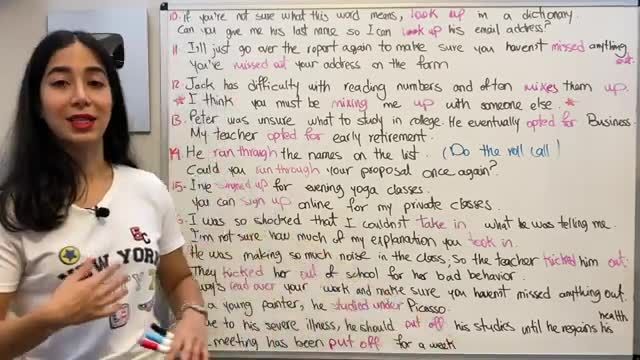 10. If you're not sure what this word means, look up in a dictionary.
Can you give me his last name so I can look up his email address?
11. I'll just go over the roport again to make sure you haven't missed anything out.
You're missed out your address on the form
12. Jack has difficulty with reading numbers and often mixes them up.
* I think you must be mixing me up with someone else. *
13. Peter was unsure what to study in college. He eventually opted for Business.
My teacher opted for early retirement.
14. He ran through the names on the list. (Do the roll call)
Could you run through your proposal once again?
15. I've signed up for evening yoga classes.
You can sign up online for my private classes.
I was so shocked that I couldn't take in what he was telling me.
I'm not sure how much of my explanation you took in.
He was making so much noise in the class, so the teacher kicked him out.
They kicked her out of school for her bad behavior.
read over your work and make sure you haven't missed anything out.
a young painter, he studied under Picasso.
to his severe illness, he should put off his studies until he regains his health
meeting has been put off for a week
NEW YORK